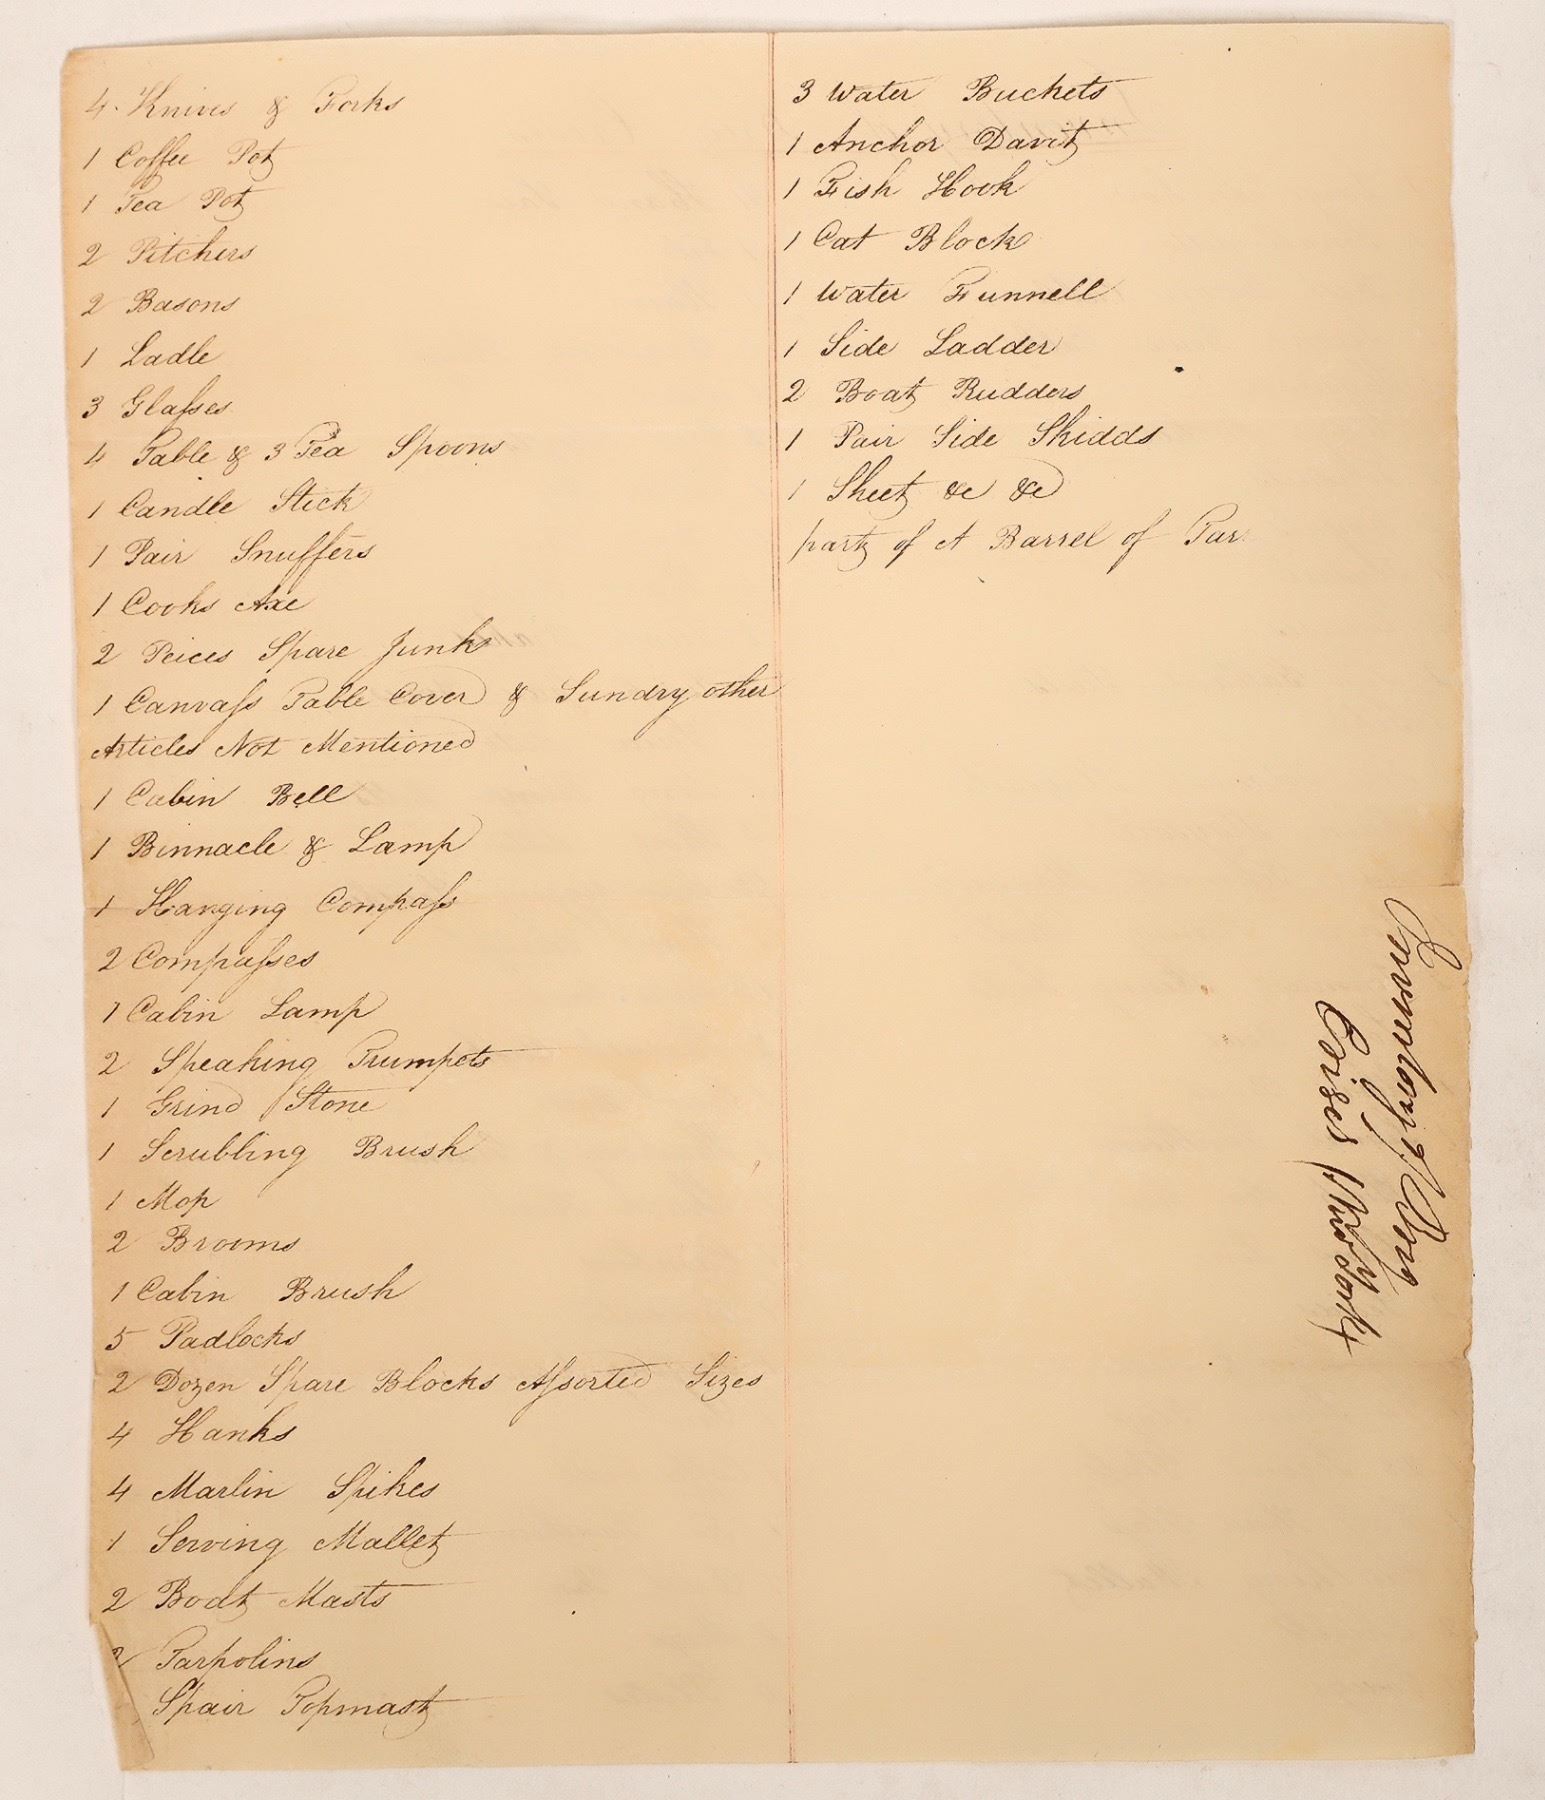 4 Knives & Forks
1 Coffee Pot
1 Tea Pot
2 Pitchers
2 Basons
1 Ladle
3 Glaſses
4 Table & 3 Tea Spoons
1 Candle Stick
1 Pair Snuffers
1 Cooks Axe
2 Peices Spare Junk
1 Canvaſs Table Cover & Sundry other
Articles Not Mentioned
1 Cabin Bell
1 Binnacle & Lamp
1 Hanging Compaſs
2 Compaſses
1 Cabin Lamp
2 Speaking Trumpets
1 Grind Stone
1 Scrubling Brush
1 Mop
2 Brooms
1 Cabin Brush
5 Padlocks
2 Dozen Spare Blocks Aſsorted Sizes
4 Hanks
4 Marlin Spikes
1 Serving Mallet
2 Boat Masts
2 Tarpolins
Spair Topmast
3 Water Buckets
1 Anchor Davit
1 Fish Hook
1 Cat Block
1 Water Funnell
1 Side Ladder
2 Boat Rudders
1 Pair Side Skidds
1 Sheet &c &c
part of A Barrel of Tar
of Brig